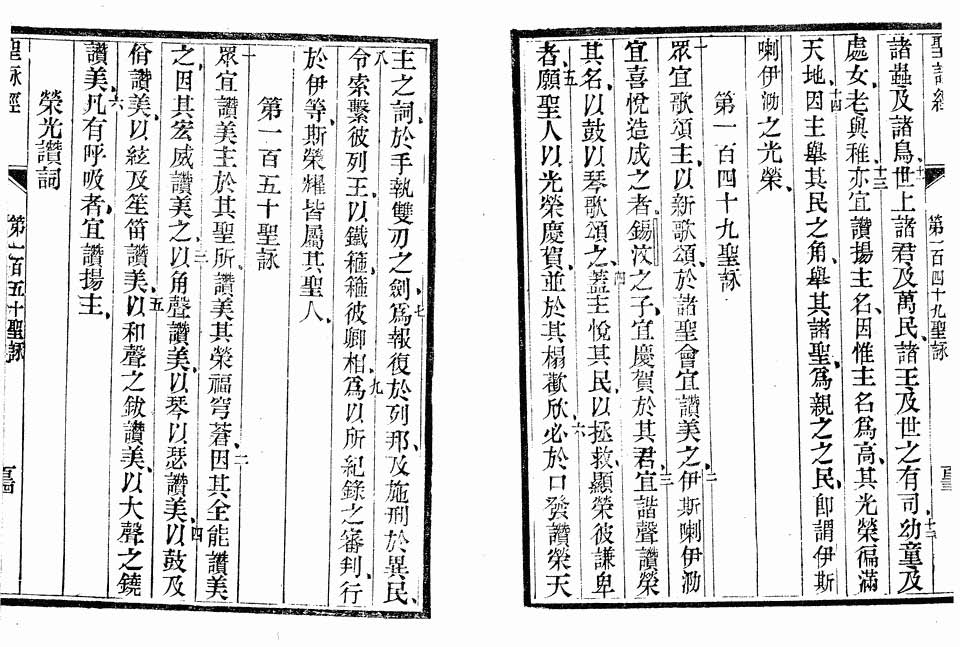 聖詠經
第一百四十九聖詠
諸蟲及諸鳥、十一世上諸君及萬民、諸王及世之有司、十二幼童及
處女、老與稚、十三亦宜讚揚主名、因惟主名爲高、其光榮徧滿
天地、十四因主舉其民之角、舉其諸聖、爲親之之民、卽謂伊斯
喇伊泐之光榮、
第一百四十九聖詠
一眾宜歌頌主、以新歌頌、於諸聖會宜讚美之、二伊斯喇伊泐
宜喜悅造成之者、錫汶之子、宜慶賀於其君、三宜諧聲讚榮
其名、以鼓以琴歌頌之、四蓋主悅其民、以拯救顯榮彼謙卑
者、五願聖人以光榮慶賀、並於其榻歡欣、六必於口發讚榮天
主之詞、於手執雙刃之劍、七爲報復於列邦、及施刑於異民、
八令索繫彼列王、以鐵箍箍彼卿相、九爲以所紀錄之審判、行
於伊等、斯榮耀皆屬其聖人、
第一百五十聖詠
一眾宜讚美主於其聖所、讚美其榮福穹蒼、二因其全能讚美
之、因其宏威讚美之、三以角聲讚美、以琴以瑟讚美、四以鼓及
佾讚美、以絃及笙笛讚美、五以和聲之鈸讚美、以大聲之鐃
讚美、六凡有呼吸者、宜讚揚主、
榮光讚詞
聖詠經
第一百五十聖詠